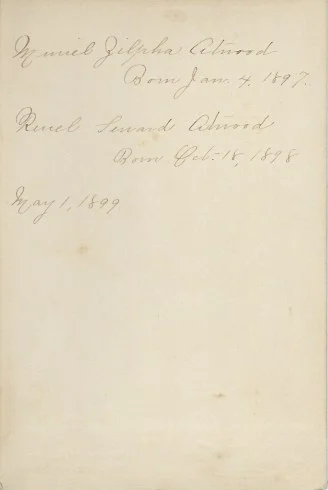 Muriel Zilpha Atwood
Born Jan. 4. 1897.
Reuel Seward Atwood
Born Oct. 18, 1898
May 1, 1899